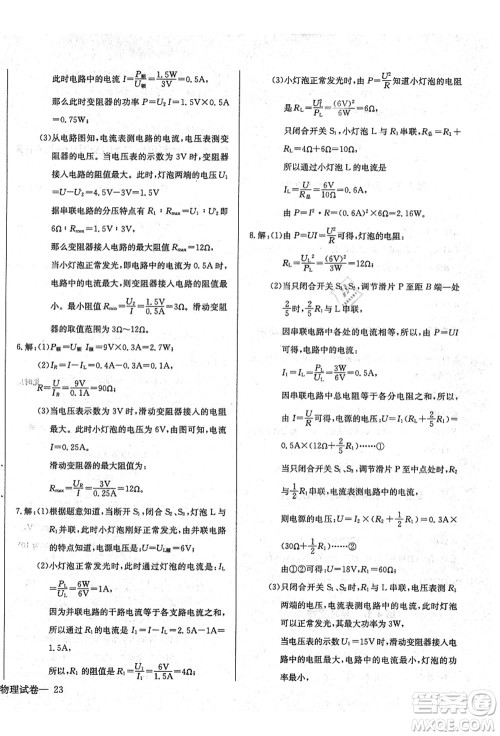 此时电路中的电流 I=P额/U额=1.5W/3V=0.5A,
那么此时变阻器的功率 P=U₂I=1.5V×0.5A
=0.75W;
(3)从电路图知,电流表测电路的电流,电压表测变
阻器的电压。当电压表的示数为 3V 时,变阻
器接入电路的阻值最大,此时,灯泡两端电压 U₁
=U-U₂=4.5V-3V=1.5V,
据串联电路的分压特点有 R₁:Rmax=U₁:U₂=
1.5V:3V=1:2,即变阻器接入电路的最大
阻值 Rmax=12Ω;
当小灯泡正常发光,即电路电流为 0.5A 时变
阻器接入电路的阻值最小,
最小阻值 Rmin=U₂/I=1.5V/0.5A=3Ω。滑动变阻器
的取值范围为 3Ω~12Ω。
6.解:(1)P额=U额I额=9V×0.1A=0.9W;
R=U/I=9V/0.1A=90Ω;
(2)当电压表示数为 3V 时,滑动变阻器接入的
电阻最大,小灯泡的电压为 6V,此时电流为
0.25A。
滑动变阻器接入的最大阻值为:
Rmax=U/I=3V/0.25A=12Ω。
7.解:(1)根据题意可知,当断开 S₂、闭合 S₁、S₃时,灯泡 L
与 R₁并联,此时小灯泡刚好正常发光,由并联电路
的特点知道,电源电压 U=U₁=UL=6V;
(2)小灯泡正常发光时,通过灯泡的电流是:IL
=PL/UL=3.6W/6V=0.6A
因为并联电路的干路电流等于各支路电流之和,
所以,通过 R₁的电流是:I₁=I-IL=1A-
0.6A=0.4A
所以,R₁的阻值是 R₁=U₁/I₁=6V/0.4A=15Ω;
(3)小灯泡正常发光时,由 P=U²/R知道小灯泡的电阻
是 RL=U²L/PL=(6V)²/3.6W=10Ω;
只闭合开关 S₂,小灯泡 L 与 R₁串联,R总=RL+
所以通过小灯泡的电流是
IL=U/R总=6V/10Ω=0.6A
由 P=I²·R=(0.6A)²×6Ω=2.16W。
8.解:(1)由 P=UI=U²/R可得,灯泡的电阻:
RL=UL²/PL=(6V)²/3W=12Ω;
(2)当只闭合开关 S₁、S₂,调节滑片 P 至距 B 端
2/5时,灯泡 L 与 2/5R₁串联,此时灯泡正常发光,
因串联电路中各处的电流相等,所以,由 P=UI
可得,电路中的电流:
I₁=IL=PL/UL=3W/6V=0.5A
因串联电路中总电阻等于各分电阻之和,所以,
由 I=U/R可得,电源的电压:U=I₁(RL+2/5R₁)=
0.5A×(12Ω+2/5R₁)……①
当只闭合开关 S₁、S₃,调节滑片 P 至中点时,R₂
与1/2R₁串联,电路中的电流 I₂=0.3A,
则电源的电压:U=I₂(R₂+1/2R₁)=0.3A×
(30Ω+1/2R₁)……②
由①②可得:U=18V,R₁=60Ω;
(3)只闭合开关 S₁、S₂时,R₁与 L 串联,电压表测 R₁
两端的电压,电流表测电路中的电流,
当电压表的示数 U大=15V 时,滑动变阻器接入
电路中的电阻最大,
因串联电路中总电压等于各分电压之和,所以,
物理试卷— 23